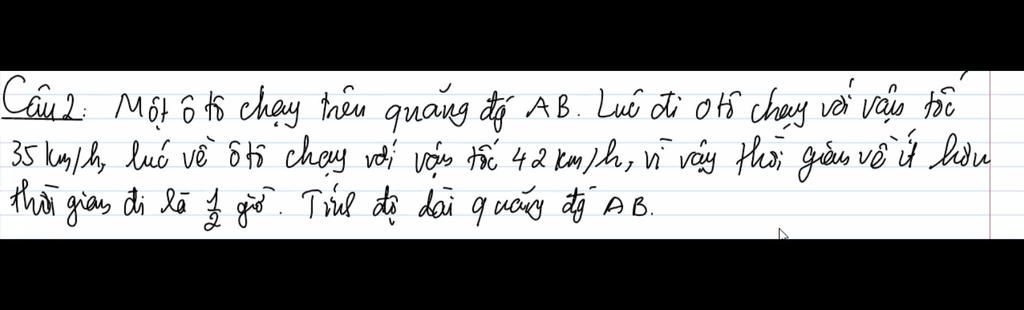 Câu 2: Một ô tô chạy trên quãng đg AB. Lúc đi ô tô chạy với vận tốc
35 km/h, lúc về ô tô chạy với vận tốc 42 km/h, vì vậy thời gian về ít hơn
thời gian đi là 1/2 giờ. Tính độ dài quãng đg AB.